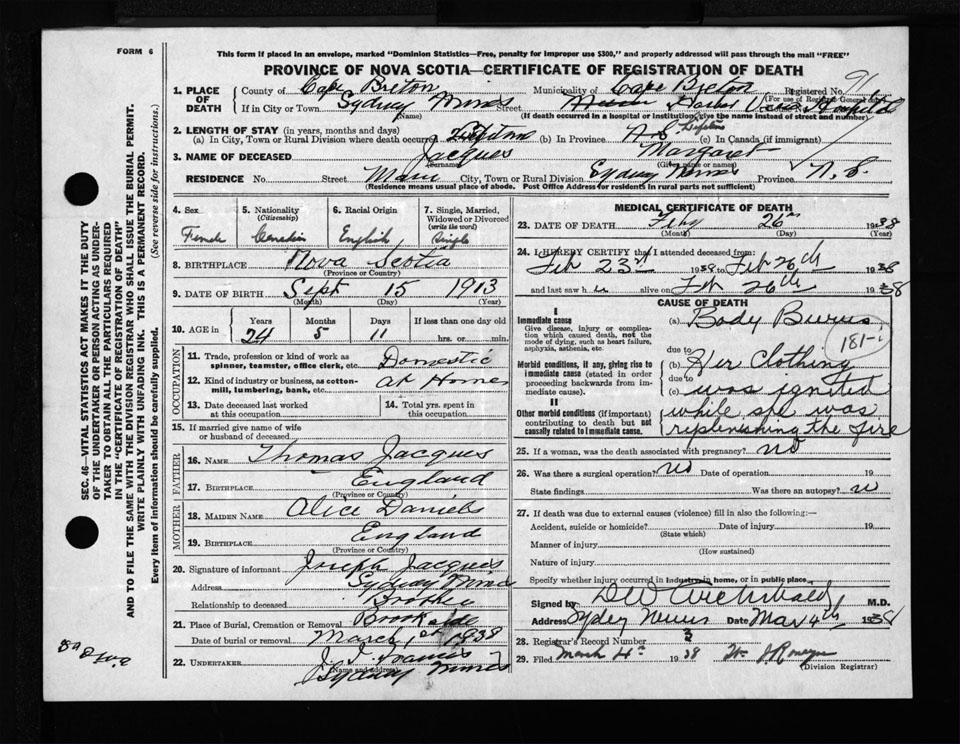 FORM 6
This form if placed in an envelope, marked "Dominion Statistics—Free, penalty for improper use $300," and properly addressed will pass through the mail "FREE"
PROVINCE OF NOVA SCOTIA—CERTIFICATE OF REGISTRATION OF DEATH
91
1. PLACE OF DEATH
County of Cape Breton Municipality of Cape Breton Registered No.
(For use of Registrar General only)
If in City or Town Sydney Mines Street Harbor View Hospital
(Name) (If death occurred in a hospital or institution, give the name instead of street and number)
2. LENGTH OF STAY (in years, months and days)
(a) In City, Town or Rural Division where death occurred (b) In Province (c) In Canada (if immigrant)
3. NAME OF DECEASED Jacques Margaret
(Surname) (Given name or names)
RESIDENCE No. Street Main City, Town or Rural Division Sydney Mines Province N. S.
(Residence means usual place of abode. Post Office Address for residents in rural parts not sufficient)
4. Sex
Female
5. Nationality
(Citizenship)
Canadian
6. Racial Origin
English
7. Single, Married, Widowed or Divorced
(write the word)
Single
8. BIRTHPLACE Nova Scotia
(Province or Country)
9. DATE OF BIRTH Sept 15 1913
(Month) (Day) (Year)
10. AGE in
Years Months Days If less than one day old
24 5 11 hrs. or min.
OCCUPATION
11. Trade, profession or kind of work as spinner, teamster, office clerk, etc. Domestic
12. Kind of industry or business, as cotton-mill, lumbering, bank, etc. at Home
13. Date deceased last worked at this occupation
14. Total yrs. spent in this occupation
15. If married give name of wife or husband of deceased
FATHER
16. NAME Thomas Jacques
17. BIRTHPLACE England
(Province or Country)
MOTHER
18. MAIDEN NAME Alice Daniels
19. BIRTHPLACE England
(Province or Country)
20. Signature of informant Joseph Jacques
Address Sydney Mines
Relationship to deceased Brother
21. Place of Burial, Cremation or Removal Brookside
Date of burial or removal March 1st 1938
22. UNDERTAKER
(Name and address)
Sydney Mines
MEDICAL CERTIFICATE OF DEATH
23. DATE OF DEATH Feby 26th 1938
(Month) (Day) (Year)
24. I HEREBY CERTIFY that I attended deceased from:
Feb 23rd 1938 to Feb 26th 1938
and last saw her alive on Feb 26th 1938
CAUSE OF DEATH
I
Immediate cause
Give disease, injury or complication which caused death, not the mode of dying, such as heart failure, asphyxia, asthenia, etc.
(a) Body Burns
181-
due to
Morbid conditions, if any, giving rise to immediate cause (stated in order proceeding backwards from immediate cause).
(b) Her Clothing
due to
(c) was ignited
II
Other morbid conditions (if important) contributing to death but not causally related to immediate cause.
while she was
replenishing the fire
25. If a woman, was the death associated with pregnancy? no
26. Was there a surgical operation? no Date of operation 19
State findings Was there an autopsy? no
27. If death was due to external causes (violence) fill in also the following:—
Accident, suicide or homicide? Date of injury 19
(State which)
Manner of injury
(How sustained)
Nature of injury
Specify whether injury occurred in industry, in home, or in public place
Signed by D W Archibald M.D.
Address Sydney Mines Date Mar 4th 1938
28. Registrar's Record Number 3
29. Filed March 4th 1938
(Division Registrar)
SEC. 46—VITAL STATISTICS ACT MAKES IT THE DUTY
OF THE UNDERTAKER OR PERSON ACTING AS UNDER-
TAKER TO OBTAIN ALL THE PARTICULARS REQUIRED
IN THE "CERTIFICATE OF REGISTRATION OF DEATH"
AND TO FILE THE SAME WITH THE DIVISION REGISTRAR WHO SHALL ISSUE THE BURIAL PERMIT.
WRITE PLAINLY WITH UNFADING INK. THIS IS A PERMANENT RECORD.
Every item of information should be carefully supplied. (See reverse side for instructions.)